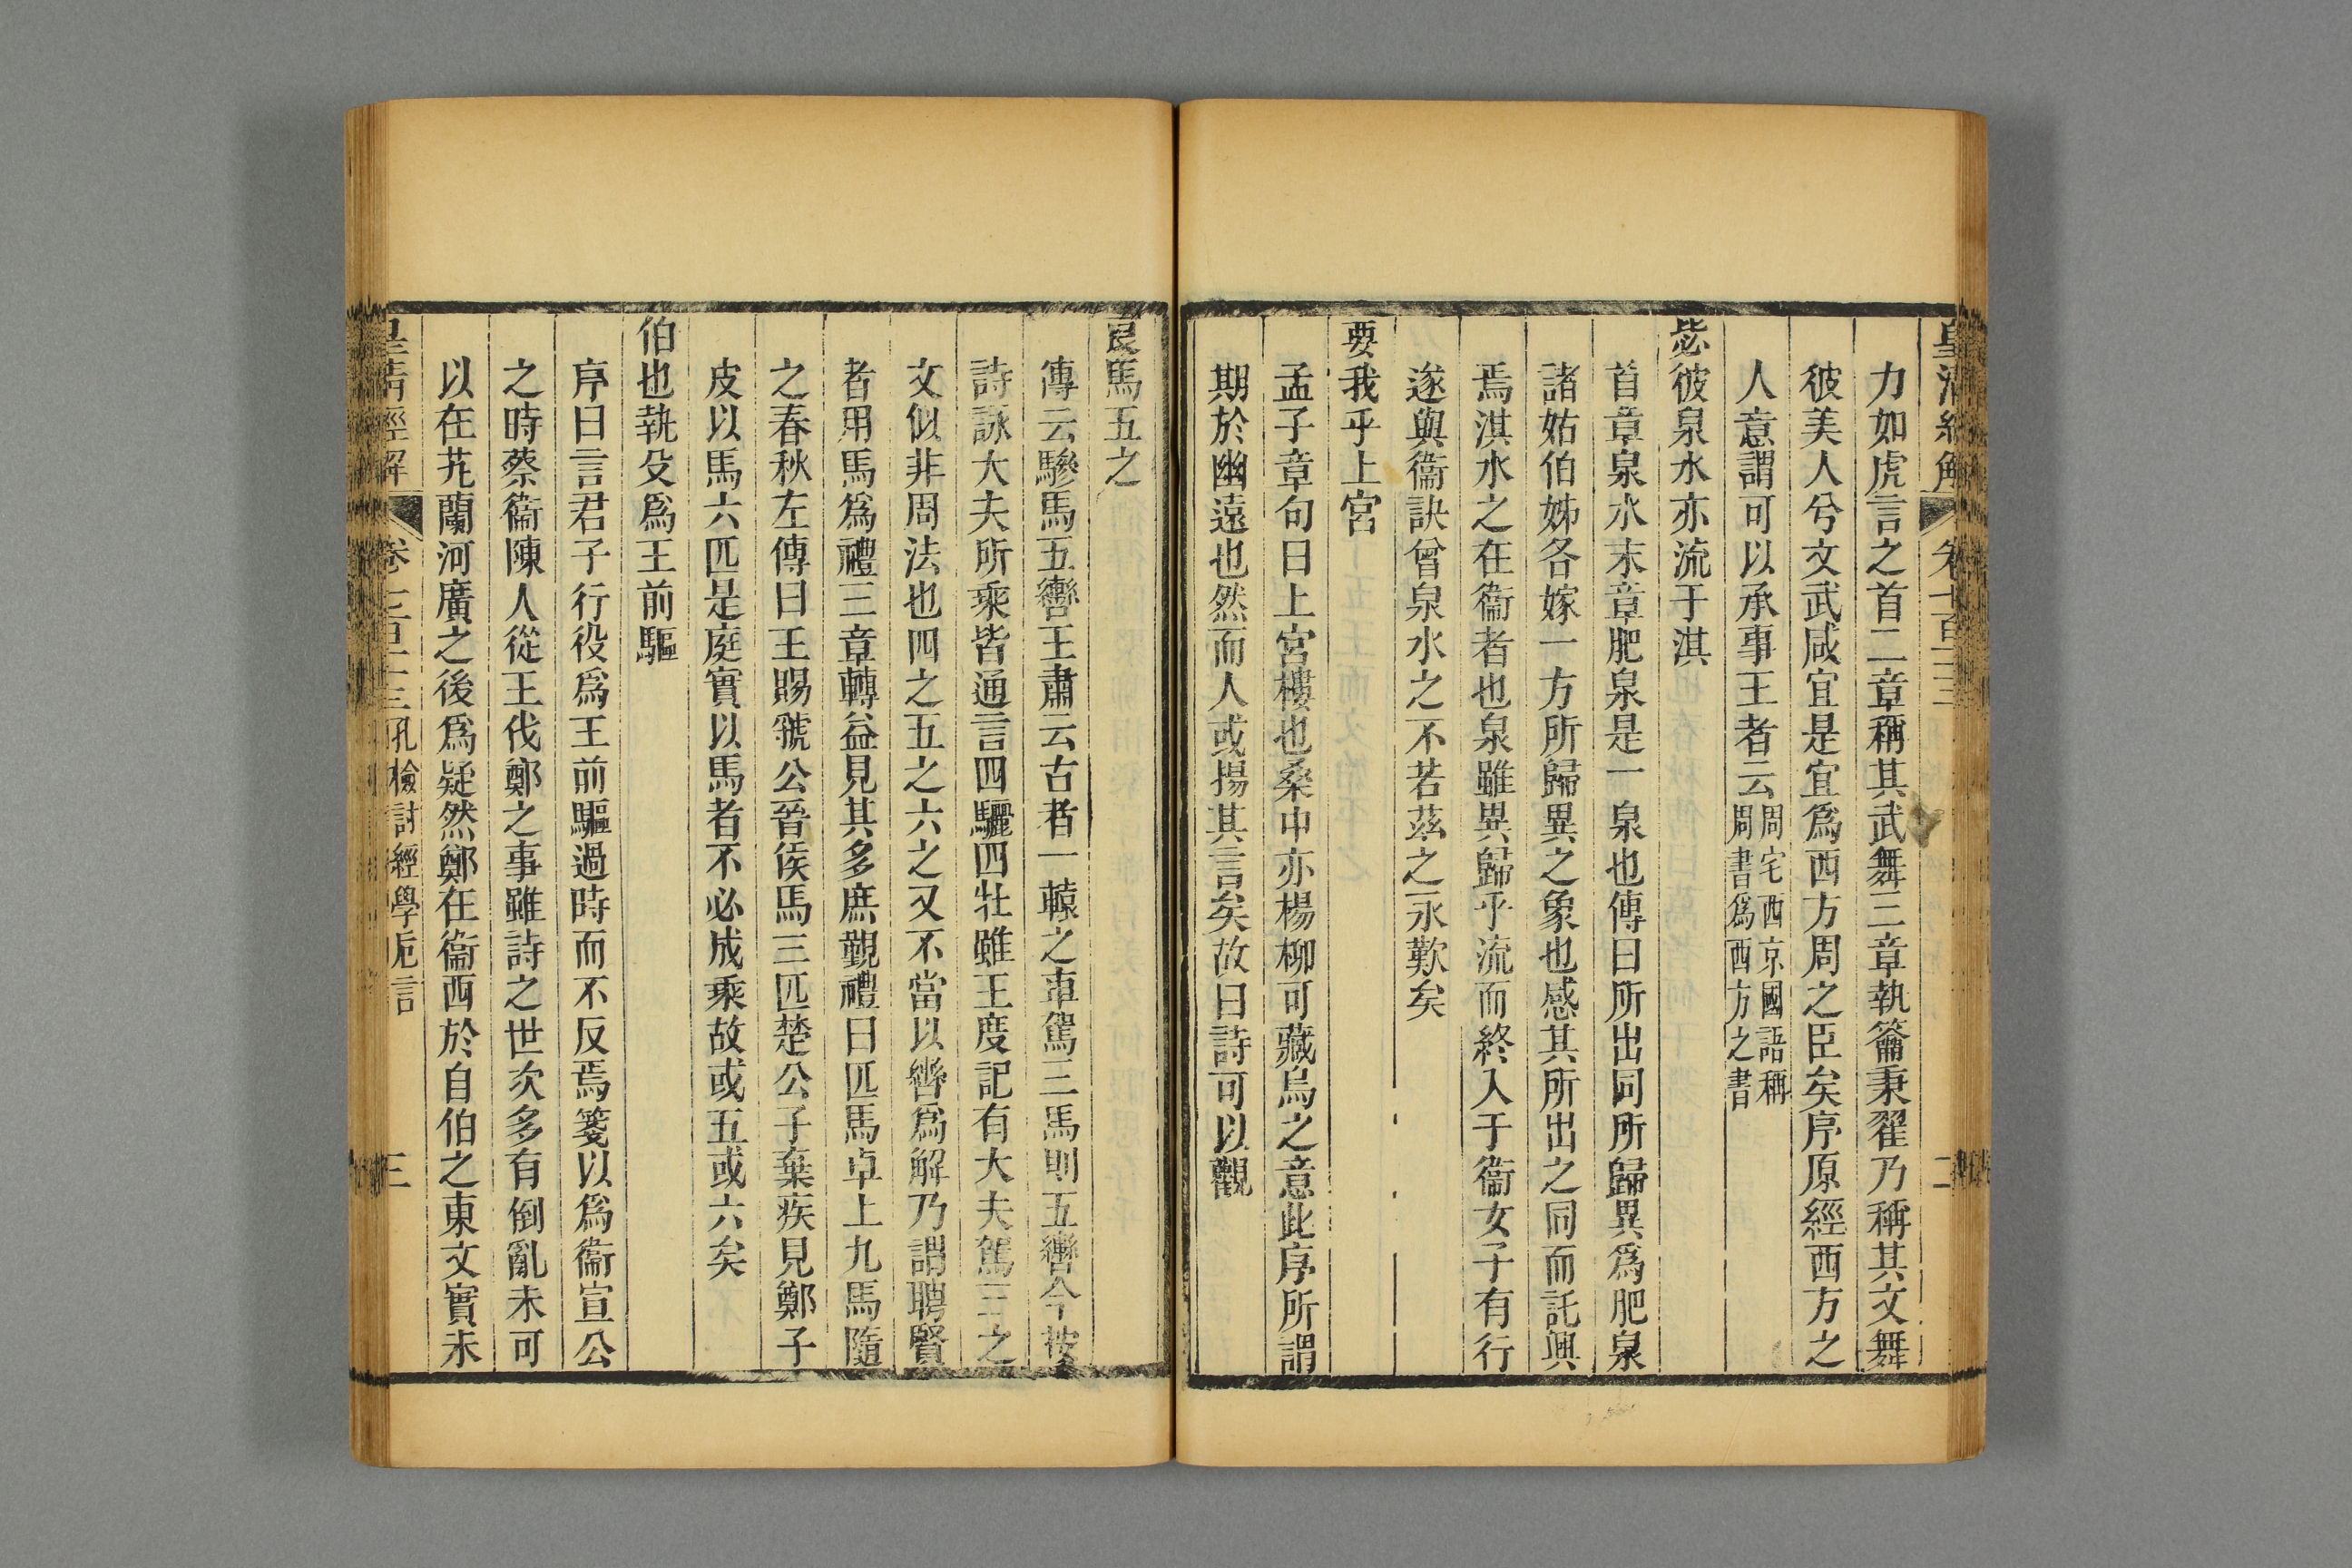 皇清經解 卷七百十三 二
力如虎言之首二章稱其武舞三章執籥秉翟乃稱其文舞
彼美人兮文武咸宜是宜爲西方周之臣矣序原經西方之
人意謂可以承事王者云周宅西京國語稱周書爲西方之書
毖彼泉水亦流于淇
首章泉水末章肥泉是一泉也傳曰所出同所歸異爲肥泉
諸姑伯姊各嫁一方所歸異之象也感其所出之同而託興
焉淇水之在衞者也泉雖異歸乎流而終入于衞女子有行
遂與衞訣曾泉水之不若茲之永歎矣
要我乎上宮
孟子章句曰上宮樓也桑中亦楊柳可藏烏之意此序所謂
期於幽遠也然而人或揚其言矣故曰詩可以觀
良馬五之
傳云驂馬五轡王肅云古者一轅之車駕三馬則五轡今按
詩詠大夫所乘皆通言四驪四牡雖王度記有大夫駕三之
文似非周法也四之五之六之又不當以轡爲解乃謂聘賢
者用馬爲禮三章轉益見其多庶覲禮曰匹馬卓上九馬隨
之春秋左傳曰王賜虢公晉侯馬三匹楚公子棄疾見鄭子
皮以馬六匹是庭實以馬者不必成乘故或五或六矣
伯也執殳爲王前驅
序曰言君子行役爲王前驅過時而不反焉箋以爲衞宣公
之時蔡衞陳人從王伐鄭之事雖詩之世次多有倒亂未可
以在芄蘭河廣之後爲疑然鄭在衞西於自伯之東文實未
皇清經解 卷七百十三 孔檢討經學卮言 三